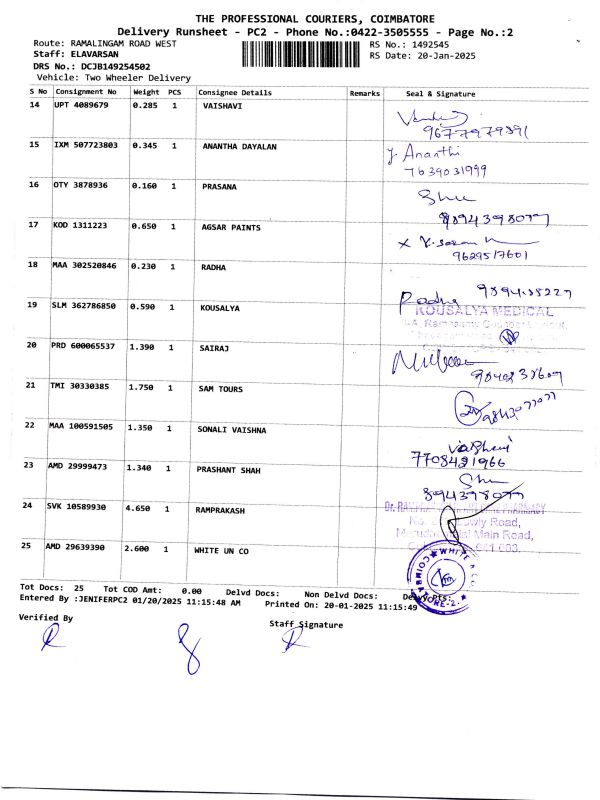 THE PROFESSIONAL COURIERS, COIMBATORE
Delivery Runsheet - PC2 - Phone No.:0422-3505555 - Page No.:2
Route: RAMALINGAM ROAD WEST RS No.: 1492545
Staff: ELAVARSAN RS Date: 20-Jan-2025
DRS No.: DCJB149254502
Vehicle: Two Wheeler Delivery
S No Consignment No Weight PCS Consignee Details Remarks Seal & Signature
14 UPT 4089679 0.285 1 VAISHAVI
9677979891
15 IXM 507723803 0.345 1 ANANTHA DAYALAN
Y Ananthi
7639031999
16 OTY 3878936 0.160 1 PRASANA
9894398077
17 KOD 1311223 0.650 1 AGSAR PAINTS
9629517601
18 MAA 302520846 0.230 1 RADHA
Radha
19 SLM 362786850 0.590 1 KOUSALYA
KOUSALYA MEDICAL
20 PRD 600065537 1.390 1 SAIRAJ
21 TMI 30330385 1.750 1 SAM TOURS
22 MAA 100591505 1.350 1 SONALI VAISHNA
Vaishavi
7708421966
23 AMD 29999473 1.340 1 PRASHANT SHAH
24 SVK 10589930 4.650 1 RAMPRAKASH
Main Road,
25 AMD 29639390 2.600 1 WHITE UN CO
COIMBATORE-2
Tot Docs: 25 Tot COD Amt: 0.00 Delvd Docs: Non Delvd Docs: Delvy Pts:
Entered By :JENIFERPC2 01/20/2025 11:15:48 AM Printed On: 20-01-2025 11:15:49
Verified By Staff Signature